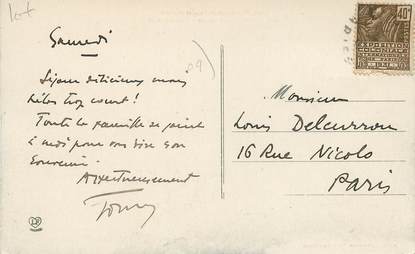 Samedi
Séjour délicieux mais
hélas trop court !
Toute la famille se joint
à moi pour vous dire son
souvenir
Affectueusement
Monsieur
Louis Delcurrou
16 Rue Nicolo
Paris
40c
EXPOSITION
COLONIALE
INTERNATIONALE
PARIS 1931